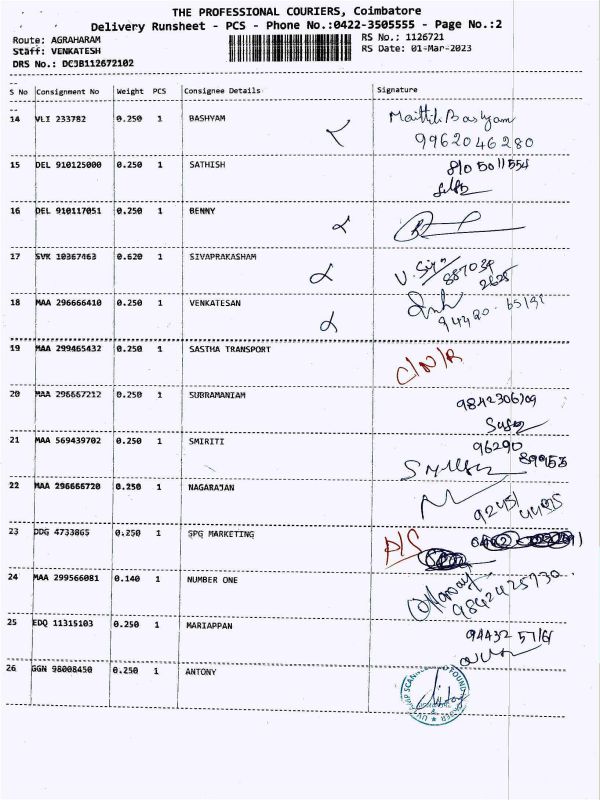 THE PROFESSIONAL COURIERS, Coimbatore
Delivery Runsheet - PCS - Phone No.:0422-3505555 - Page No.:2
Route: AGRAHARAM RS No.: 1126721
Staff: VENKATESH RS Date: 01-Mar-2023
DRS No.: DC3B112672102
S No Consignment No Weight PCS Consignee Details Signature
14 VLI 233782 0.250 1 BASHYAM Maittili Bashyam
9962046280
15 DEL 910125000 0.250 1 SATHISH 810 5011554
16 DEL 910117051 0.250 1 BENNY
17 SVK 10367463 0.620 1 SIVAPRAKASHAM V. Siva
887039
2628
18 MAA 296666410 0.250 1 VENKATESAN
19 MAA 299465432 0.250 1 SASTHA TRANSPORT C/N/R
20 MAA 296667212 0.250 1 SUBRAMANIAM 9842306209
21 MAA 569439702 0.250 1 SMIRITI 96290
89953
22 MAA 296666720 0.250 1 NAGARAJAN 92451
4495
23 DDG 4733865 0.250 1 SPG MARKETING D/S
24 MAA 299566081 0.140 1 NUMBER ONE
9842425730
25 EDQ 11315103 0.250 1 MARIAPPAN 94432 57161
26 GGN 98008450 0.250 1 ANTONY